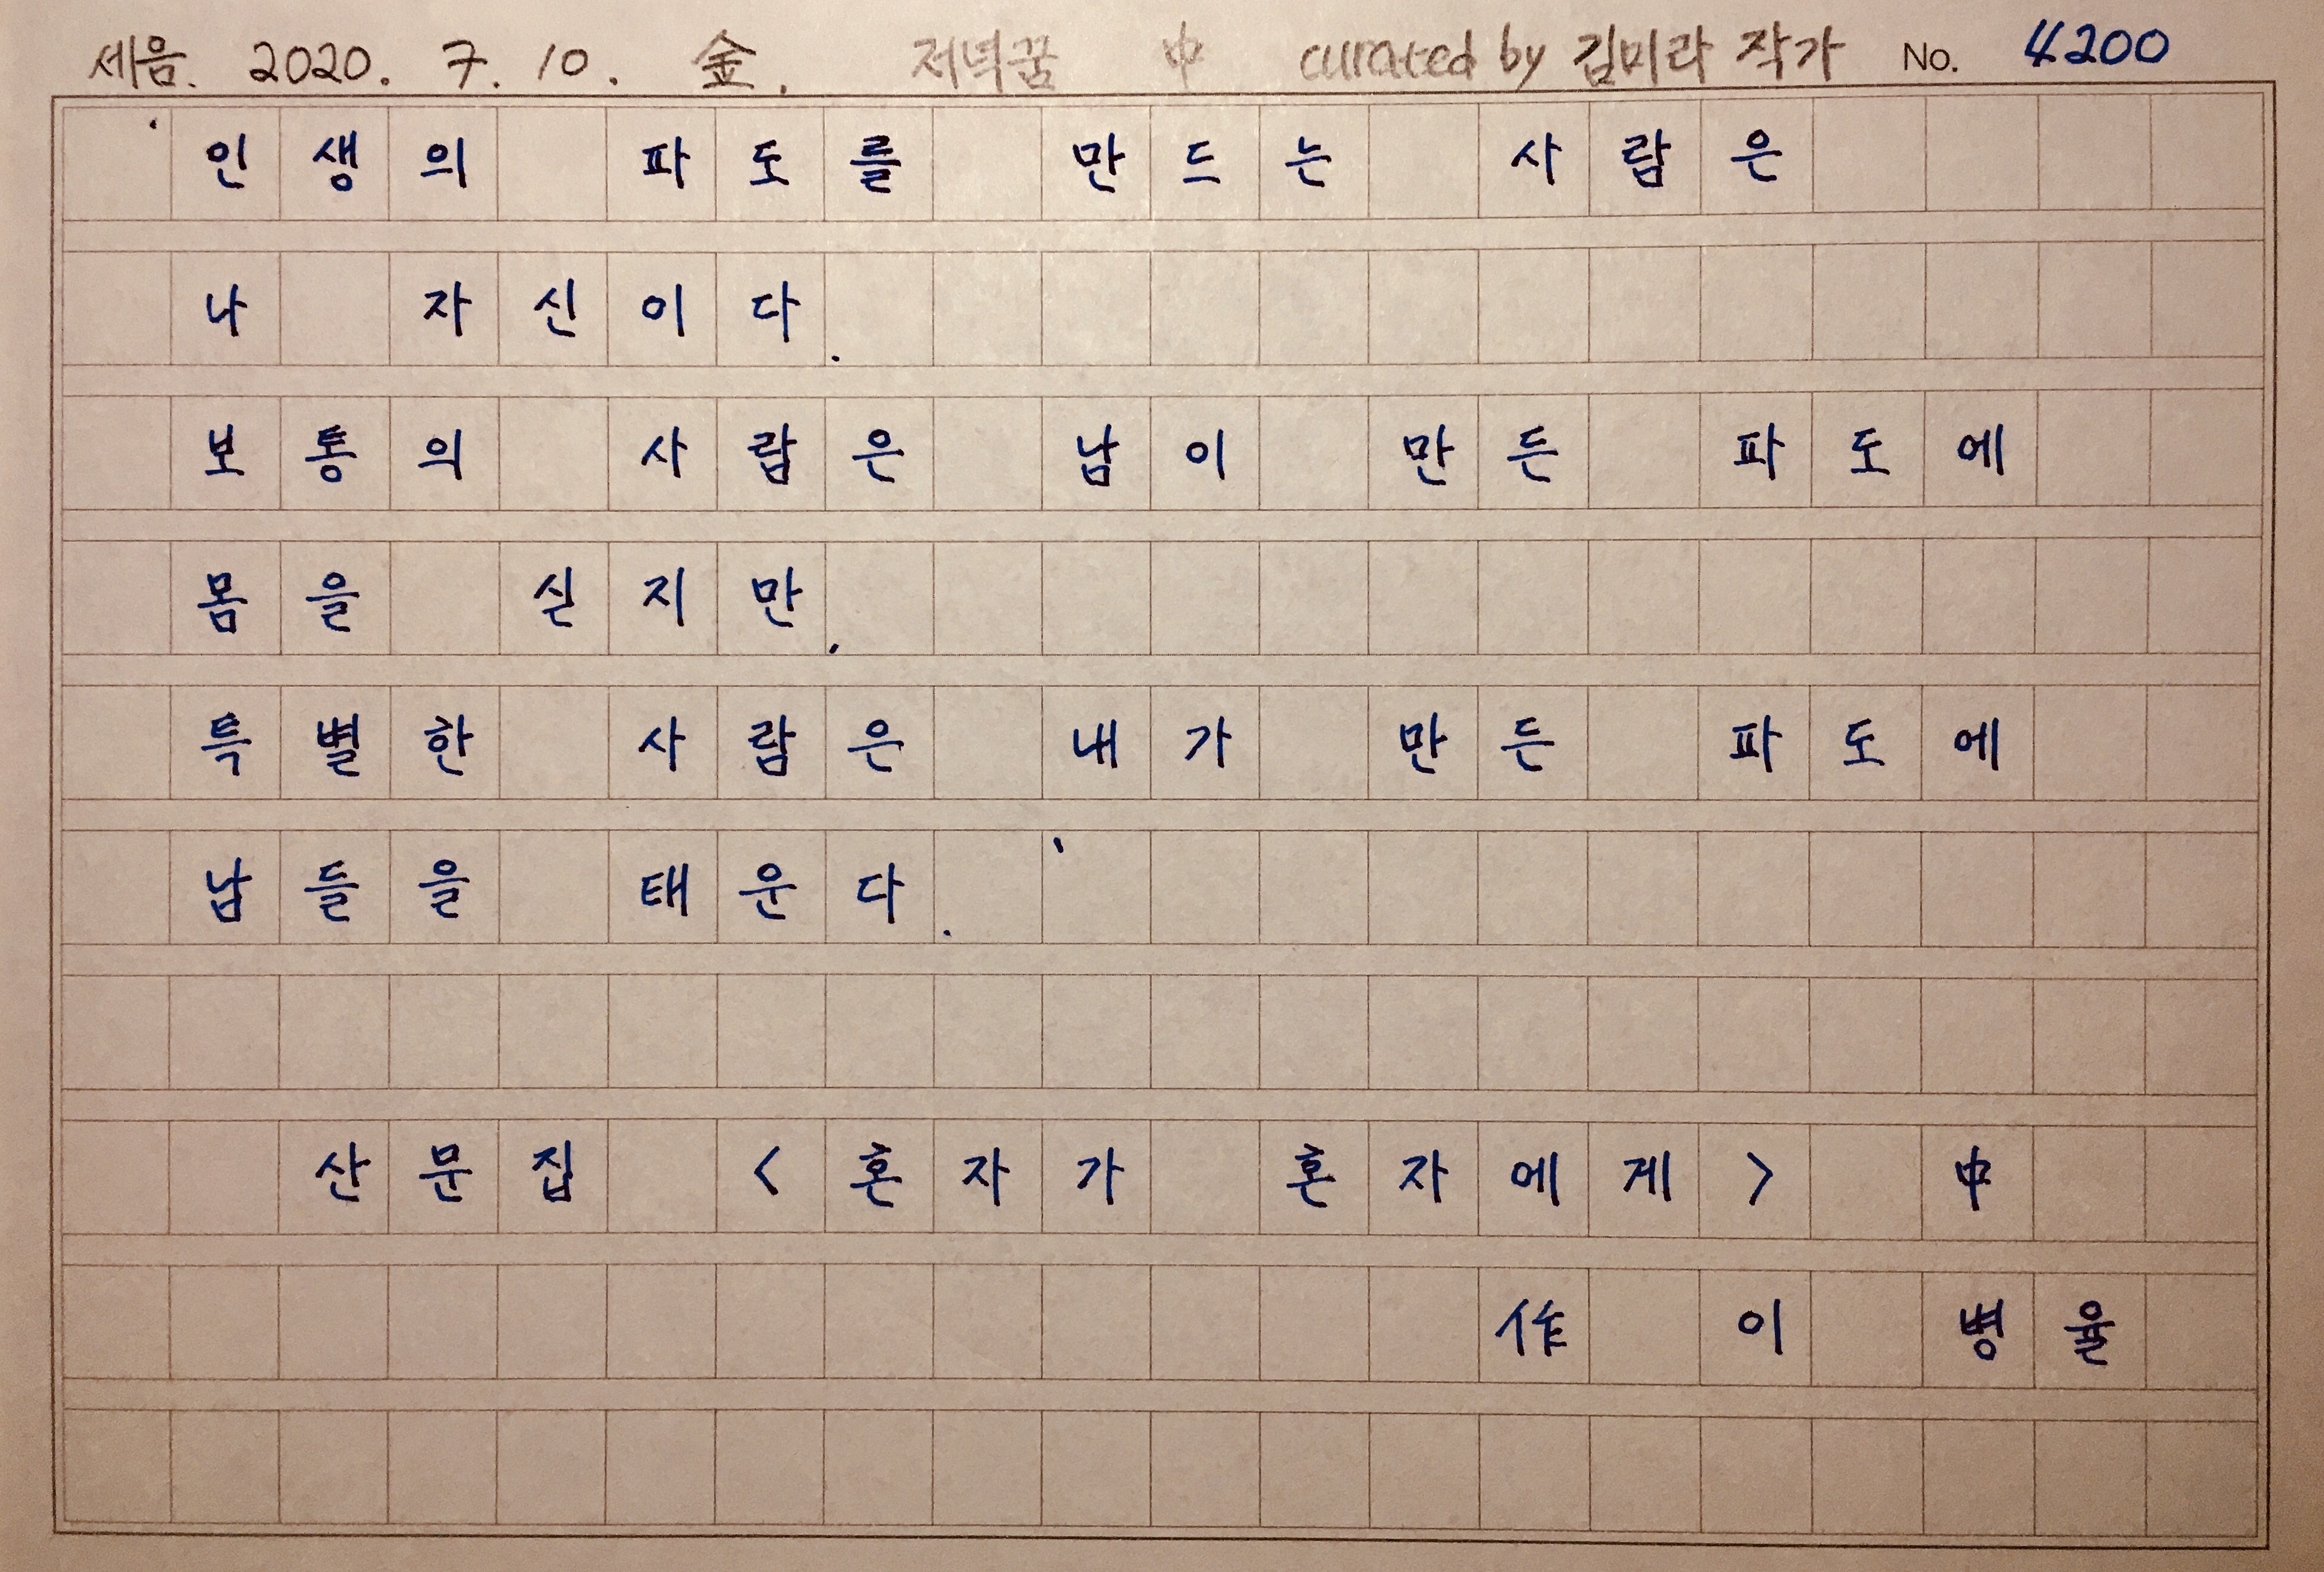 세음. 2020. 7. 10. 金. 저녁꿈 中 curated by 김미라 작가 No. 4200
'인생의 파도를 만드는 사람은
나 자신이다.
보통의 사람은 남이 만든 파도에
몸을 싣지만,
특별한 사람은 내가 만든 파도에
남들을 태운다.'
산문집 <혼자가 혼자에게> 中
作 이 병율